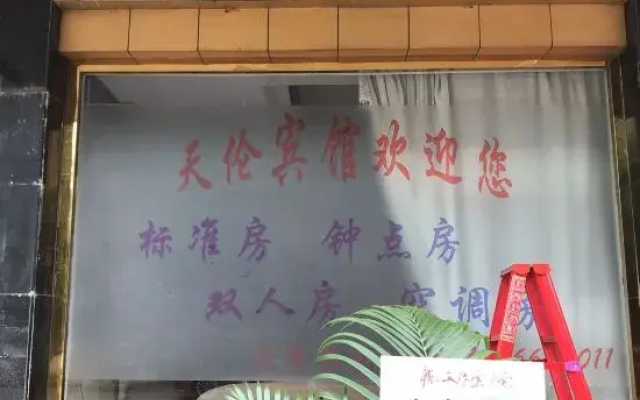 天伦宾馆欢迎您
标准房 钟点房
双人房 空调房
011